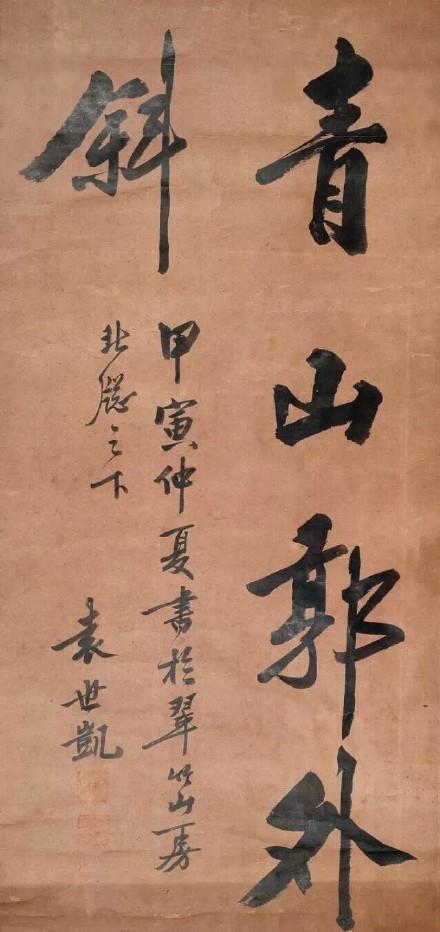 青山郭外
斜
甲寅仲夏書於翠竹山房
北窓之下
袁世凱